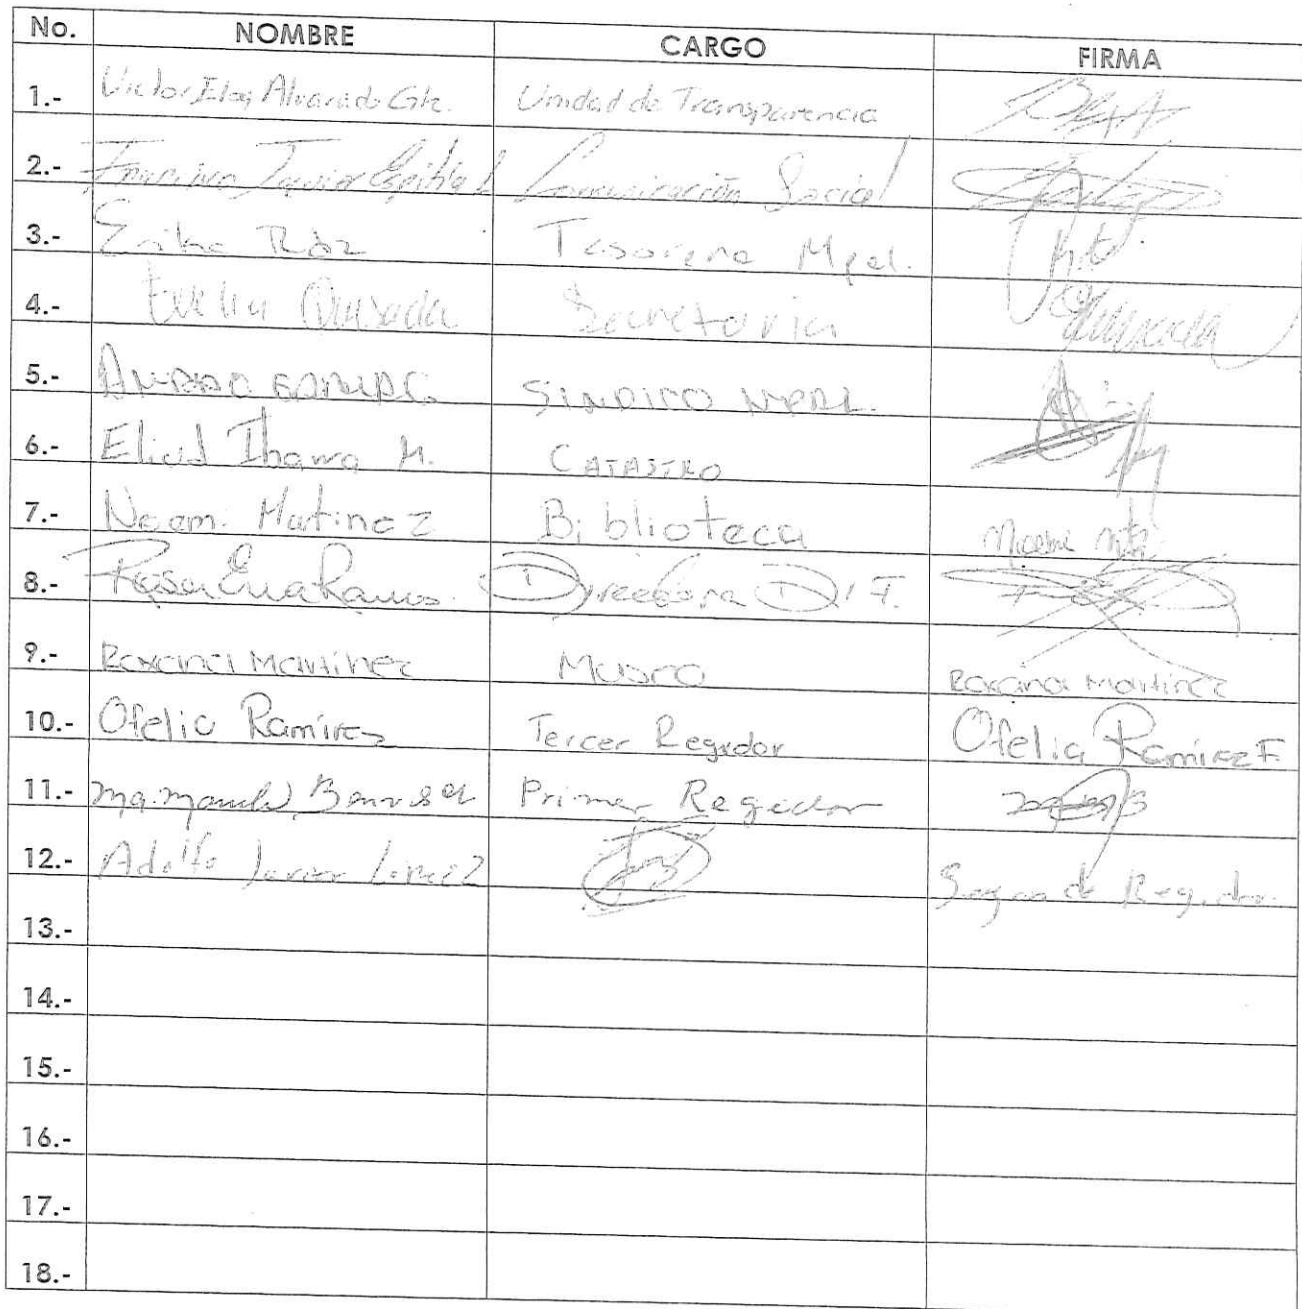 No. NOMBRE CARGO FIRMA
1.- Victor Eloy Alvarado Glz. Unidad de Transparencia
2.- Francisco Javier Espitia L Comunicación Social
3.- Erika Tesorera Mpal.
4.- Evelia Quezada Secretaria
5.- SINDICO MPAL.
6.- Eliud Ibarra M. CATASTRO
7.- Noemi Martinez Biblioteca
8.- Rosa Eva Ramos. Directora D.I.F.
9.- Roxana Martinez Museo Roxana Martinez
10.- Ofelia Ramírez Tercer Regidor Ofelia Ramírez F.
11.- Ma. Manuela Primer Regidor
12.- Adolfo Javier Segundo Regidor.
13.-
14.-
15.-
16.-
17.-
18.-